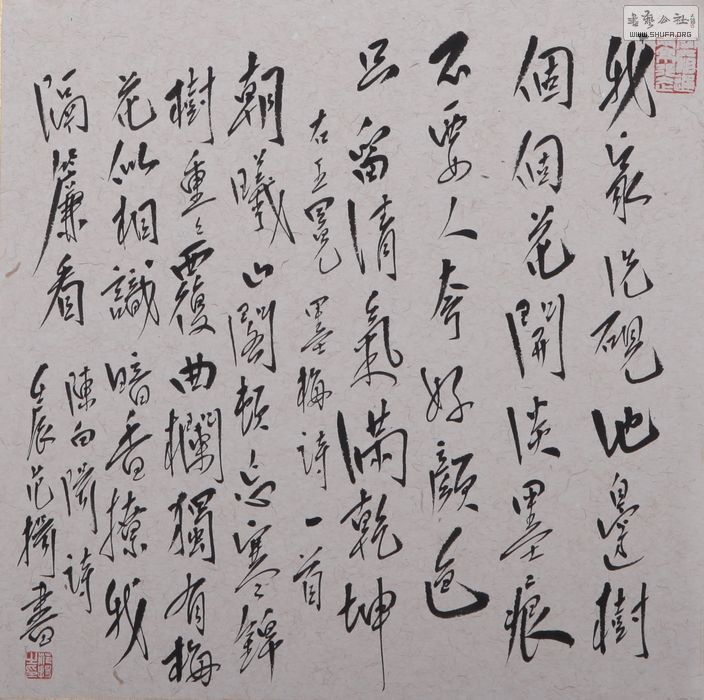 書藝公社
WWW.SHUFA.ORG
我家洗硯池邊樹
個個花開淡墨痕
不要人夸好顏色
只留清氣滿乾坤
右王冕墨梅詩一首
朝曦山閣頓忘寒錦
樹重々覆曲欄獨有梅
花似相識暗香撩我
隔簾看
陳白陽詩
壬辰范書